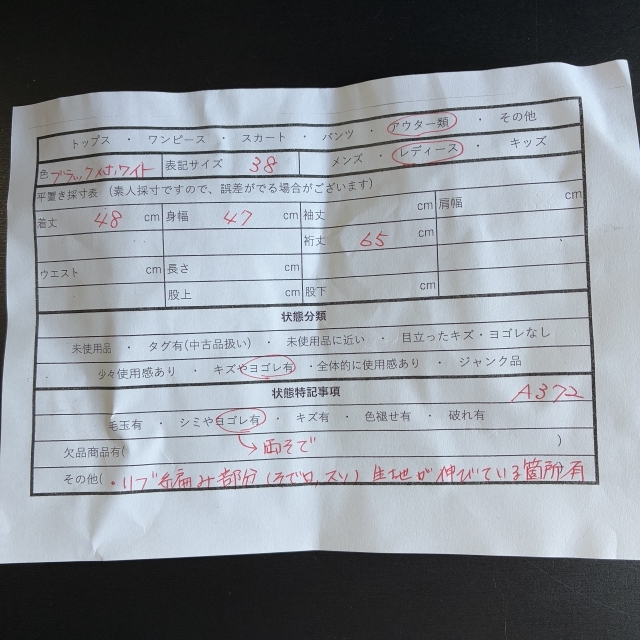 トップス ・ ワンピース ・ スカート ・ パンツ ・ アウター類 ・ その他
色 ブラック×ホワイト 表記サイズ 38 メンズ ・ レディース ・ キッズ
平置き採寸表 (素人採寸ですので、誤差がでる場合がございます)
着丈 48 cm 身幅 47 cm 袖丈 cm 肩幅 cm
裄丈 65 cm
ウエスト cm 長さ cm
股上 cm 股下 cm
状態分類
未使用品 ・ タグ有(中古品扱い) ・ 未使用品に近い ・ 目立ったキズ・ヨゴレなし
少々使用感あり ・ キズやヨゴレ有 ・全体的に使用感あり ・ ジャンク品
状態特記事項 A372
毛玉有 ・ シミやヨゴレ有 ・ キズ有 ・ 色褪せ有 ・ 破れ有
欠品商品有( → 両そで )
その他( ・リブ編み部分(そで口、スソ)生地が伸びている箇所有